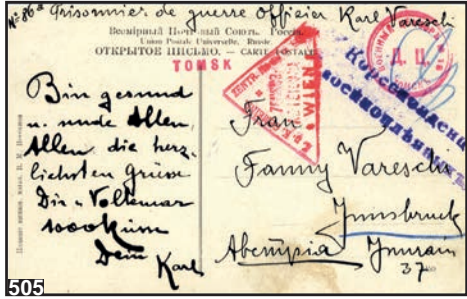 No 86a Prisonnier de guerre Officier Karl Vareschi
Всемірный Почтовый Союзъ. Россія.
Union Postale Universelle, Russie.
ОТКРЫТОЕ ПИСЬМО. — CARTE POSTALE.
TOMSK
WIEN
Д. Ц.
Корреспонденція
военноплѣнныхъ
Bin gesund
u. sende Allen,
Allen die herz-
lichsten Grüsse
Dir u. Volkmar
1000 Küsse
Dein
Karl
Frau
Fanny Vareschi
Innsbruck
Австрія Innrain
37
505